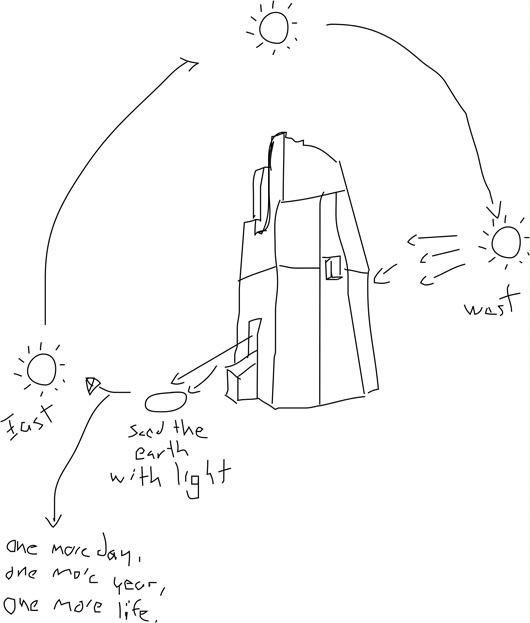 west
East
seed the
earth
with light
one more day,
one more year,
one more life.